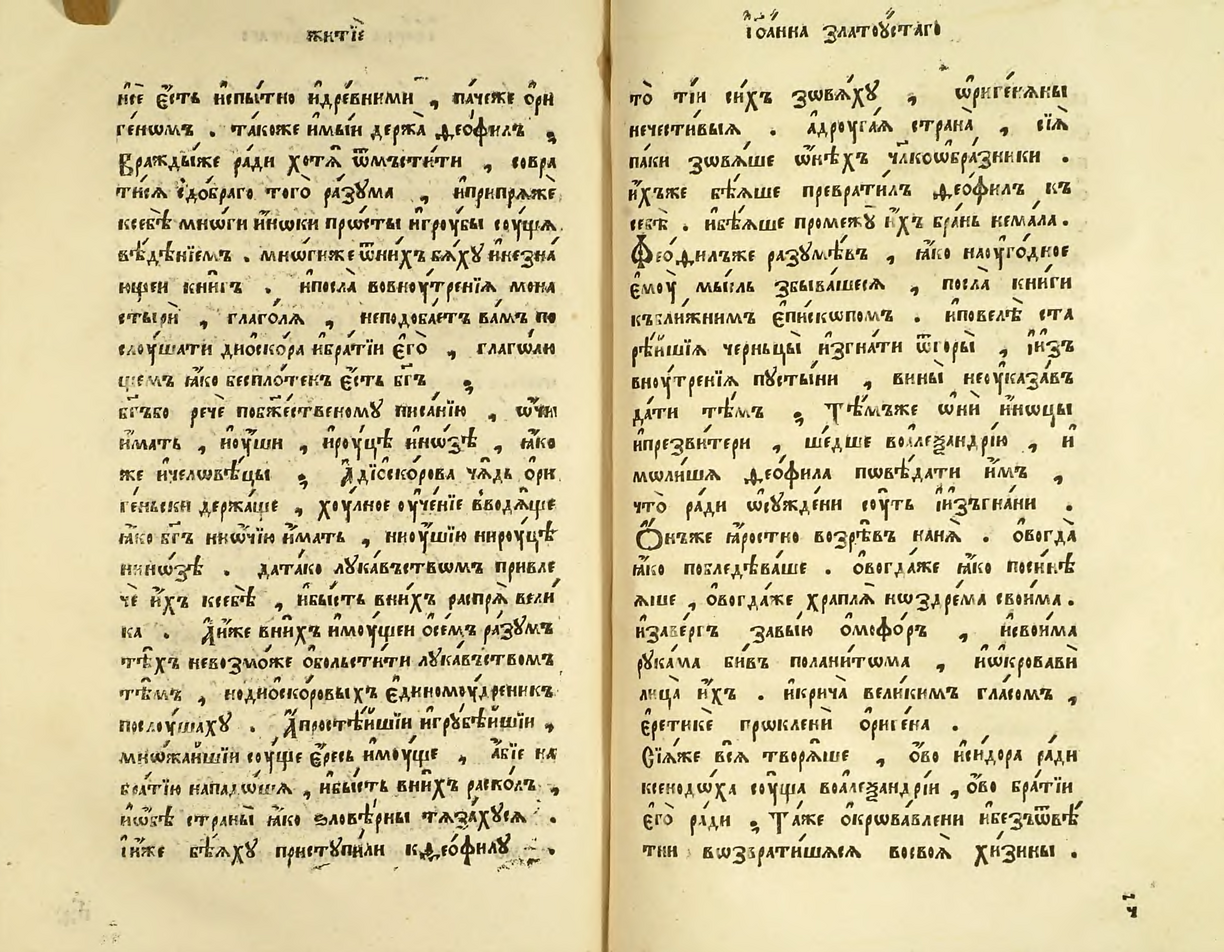 житїѐ
нсе є҆́сть и҆спы́тно и҆дре́вними , па́чеже о҆ри
ге́нѡмъ . та́коже и҆мы́и держа̀ ѳео́филъ ,
Враж́дыже ра́ди хотѧ̀ ѿмъсти́ти , совра
ти́сѧ ѕдо́браго того̀ ра́зума , и҆припрѧжѐ
ксебѣ̀ мнѡ́ги и҆́нѡки прѡ́сты и҆гроу́бы соу́щѧ
вѣ́дѣнїемъ . мнѡ́гиже ѿни́хъ бѧ́хꙋ и҆незна́
ющеи кни́гъ . и҆посла̀ вовноу́тренїѧ мона
стырѝ , глаго́лѧ , неподоба́етъ ва́мъ по
слоу́шати дио́скора и҆бра́тїи є҆го̀ , глаго́лю
щемъ ꙗ҆́ко беспло́тенъ є҆́сть бг҃ъ ,
бг҃ъбо речѐ побж҃е́ственомꙋ писа́нїю , ѻ҆́чи
и҆́мать , и҆оу҆́ши , и҆роу́цѣ и҆нѡ́зѣ , ꙗ҆́ко
же и҆человѣ́цы , А҆дїѡско́рова ча́дь о҆ри
ге́ньски держа́ше , хоу́лное оу҆че́нїе вводѧ́ще
ꙗ҆́ко бг҃ъ ниѻчїю и҆́мать , ниоу҆́шїю нироу́цѣ
нинѡ́зѣ . дата́ко лꙋка́въствѡмъ привле
чѐ и҆́хъ ксебѣ̀ , и҆бы́сть вни́хъ ра́спрѧ вели́
ка . А҆и҆́же вни́хъ и҆моу́щеи о҆се́мъ ра́зꙋмъ
тѣ́хъ невозмо́же о҆больсти́ти лꙋка́въствомъ
тѣ́мъ , нодио́скоровыхъ є҆диномоу́дреникъ
послоу́шахꙋ . А҆простѣ́йшїи и҆грꙋбѣ́йшїи ,
мнѡжа́йшїи соу́ще є҆́ресь и҆моу́ще , а҆́бїе на
бра́тїю нападо́шѧ , и҆бы́сть вни́хъ раско́лъ ,
и҆ѻ҆́бѣ страны̀ ꙗ҆́ко ѕловѣ́рны тѧза́хꙋсѧ .
І҆и҆́же бѣ́ѧхꙋ приступи́ли кѳео́филꙋ .
і҆оа́нна златоу́стаго
то̀ ті́и си́хъ зѡвѧ́хꙋ , ѡ҆риге́нѧны
нечести́выѧ . а҆дроуга́ѧ страна̀ , сїѧ̀
па́ки зѡвѧ́ше ѻ҆нѣ́хъ чл҃коѡбра́зники .
и҆́хъже бѣ́ѧше преврати́лъ ѳео́филъ къ
себѣ̀ . и҆бѣ́ѧше промежꙋ̀ и҆́хъ бра́нь нема́ла .
Ѳео́филъже разꙋмѣ́въ , ꙗ҆́ко наоуго́дное
є҆моу̀ мы́сль збыва́шесѧ , посла̀ кни́ги
къбли́жнимъ є҆пи́скѡпомъ . и҆повелѣ̀ ста
рѣ́йшїѧ черньцы̀ и҆згна́ти ѿгоры̀ , і҆и҆зъ
вноу́тренїѧ пꙋсты́ни , вины̀ неоу҆каза́въ
да́ти тѣ́мъ , Тѣ́мъже ѻ҆ни́ и҆́нѡцы
и҆презви́тери , ше́дше волеѯандрі́ю , и҆
мѡли́шѧ ѳео́фила пѡвѣ́дати и҆́мъ ,
что̀ ра́ди ѡ҆сꙋжде́ни соу́ть і҆и҆зъгна́ни .
Ѻ҆́нъже ꙗ҆́ростно возрѣ́въ нанѧ̀ . о҆вогда̀
ꙗ҆́ко побледѣ́ваше . о҆вогда́же ꙗ҆́ко посинѣ̀
ѧше , о҆вогда́же храплѧ̀ нѡ́здрема свои́ма .
и҆заве́ргъ завы́ю ѻ҆мофо́ръ , и҆свои́ма
рꙋка́ма би́въ полани́тѡма , и҆ѻ҆крова́ви
ли́ца и҆́хъ . и҆крича̀ вели́кимъ гла́сомъ ,
є҆ретикѐ прѡкленѝ ѻ҆риге́на .
Сїѧ́же всѧ̀ творѧ́ше , о҆́во и҆си́дора ра́ди
ксенодо́ха соу́ща воалеѯандрі́и , о҆́во бра́тїи
є҆го̀ ра́ди , Та́же окрѡва́влени и҆безъѿвѣ́
тни вѡзврати́шѧсѧ восвоѧ̀ хи́зины .
ч